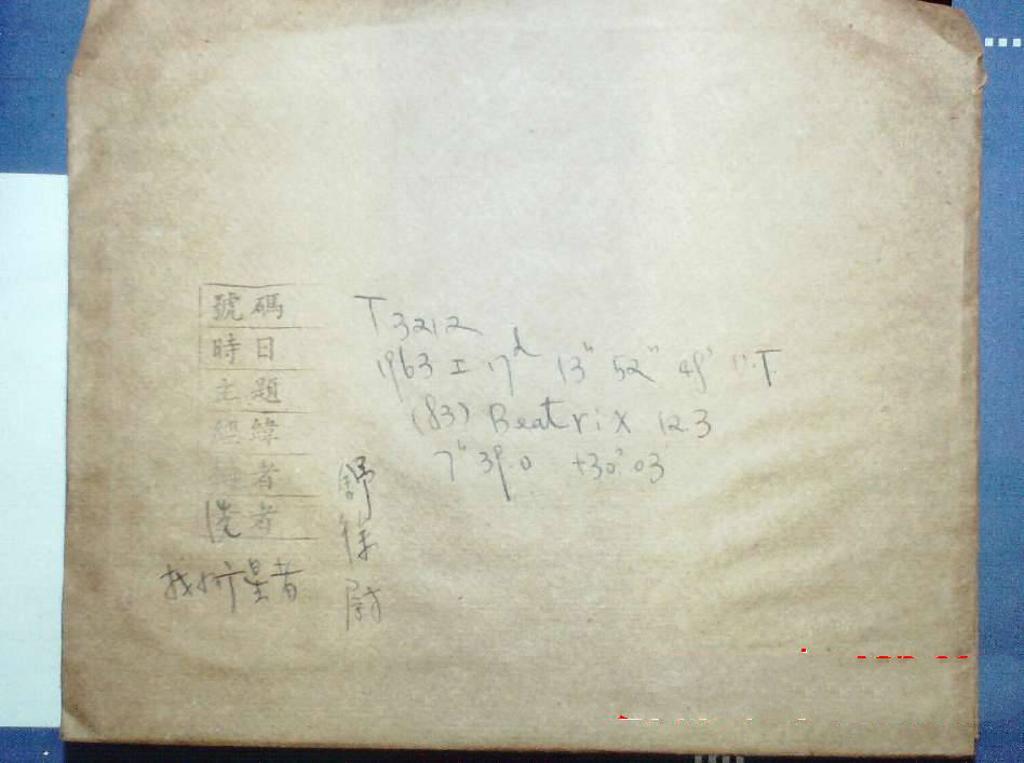 號碼 T3212
時日 1963 I 17d 13h 52m 49s U.T
主題 (83) Beatrix 12.3
經緯 7h 39.0 +30° 03'
者 舒
洗者 徐
找小行星者 尉